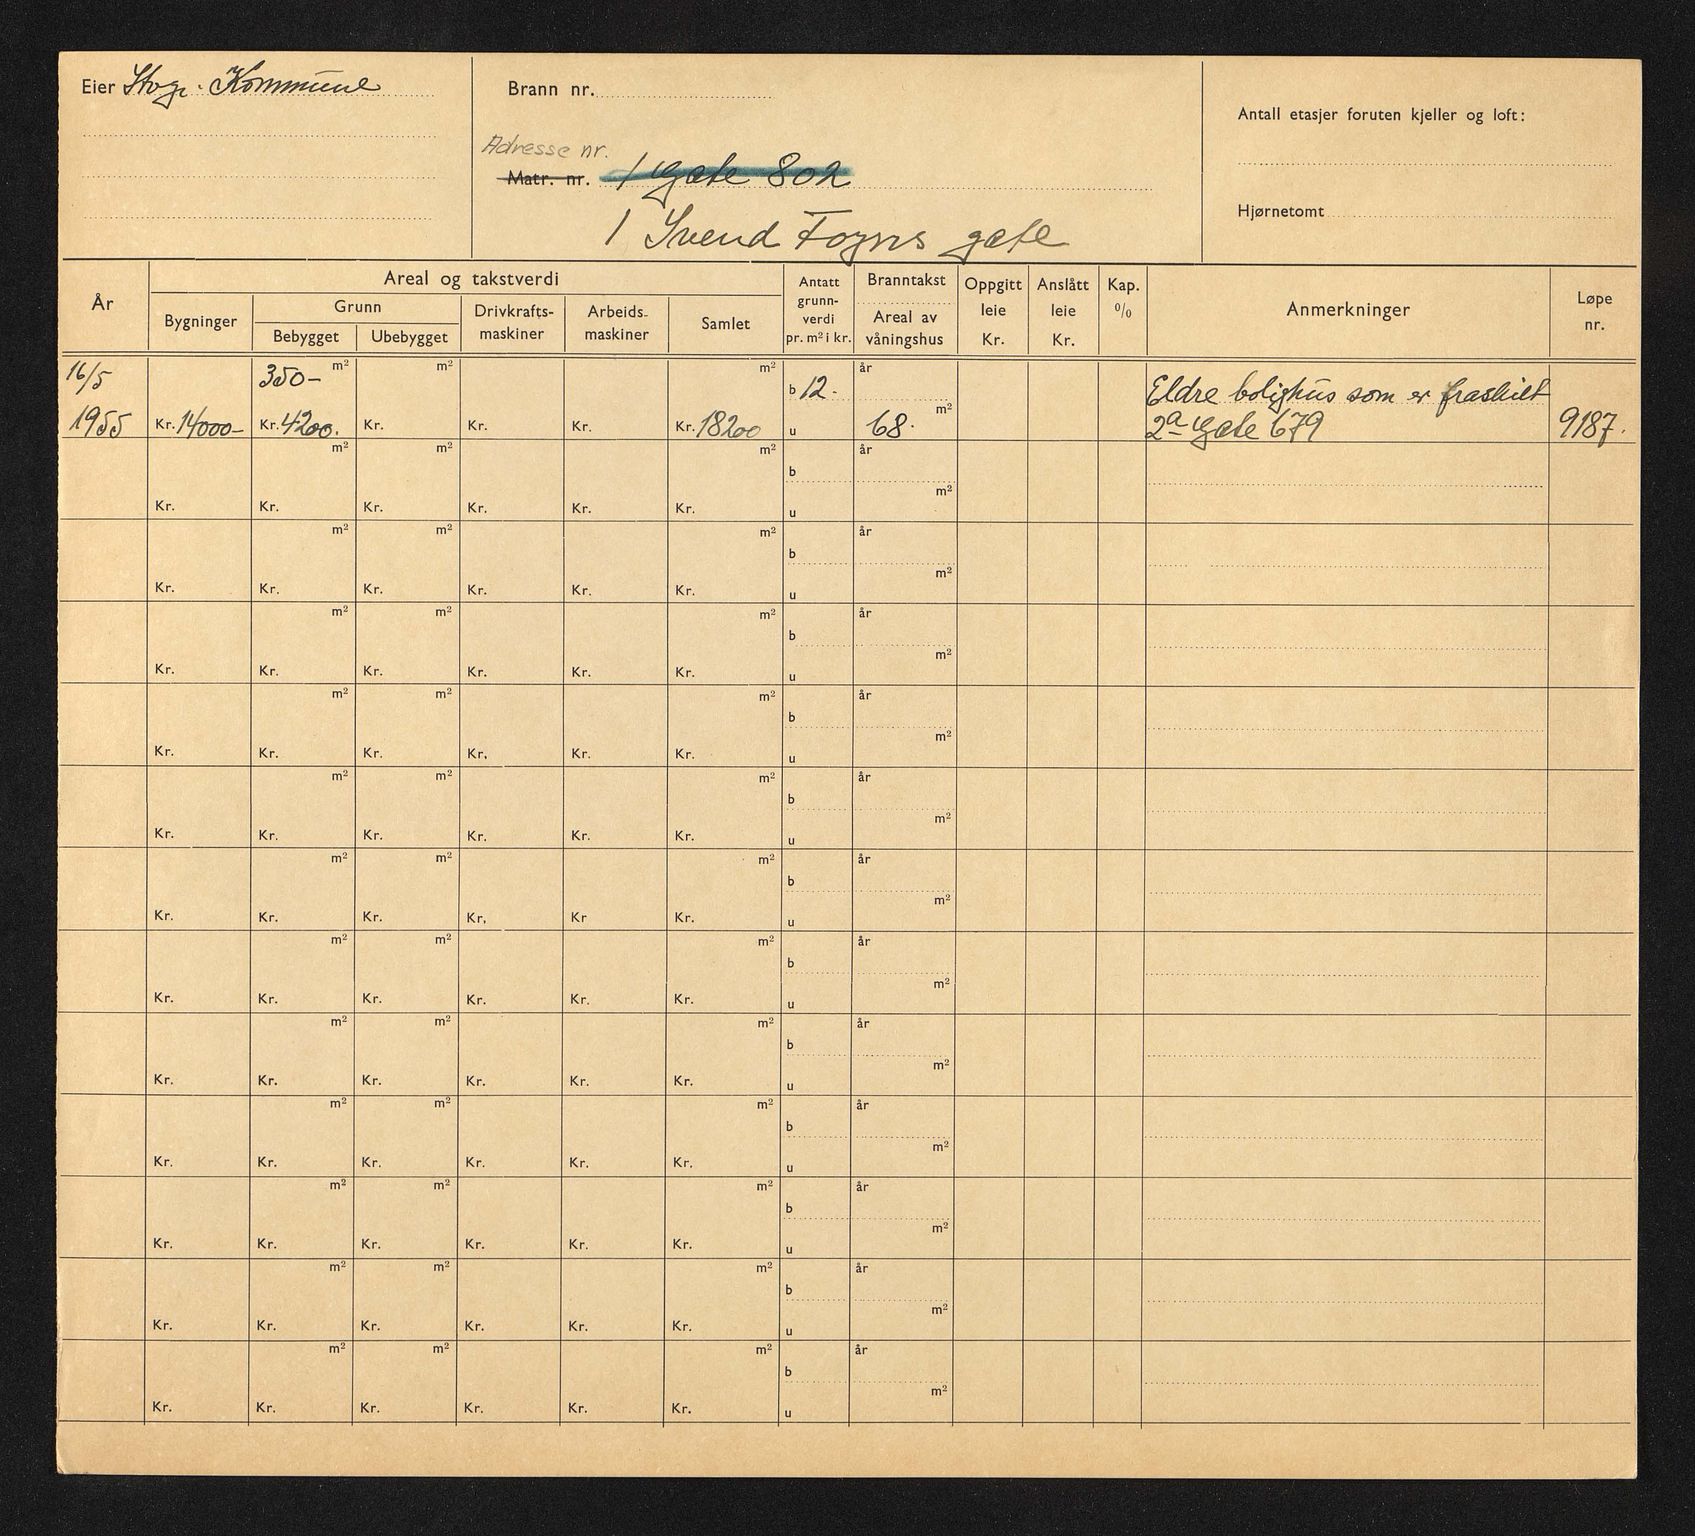 Eier Stvgr. Kommune
Brann nr.
Antall etasjer foruten kjeller og loft:
Adresse nr.
Matr. nr. 1 Gate 802
Hjørnetomt
1 Svend Foyns gate
År
Areal og takstverdi
Bygninger
Grunn
Bebygget Ubebygget
Drivkrafts-
maskiner
Arbeids-
maskiner
Samlet
Antatt
grunn-
verdi
pr. m² i kr.
Branntakst
Areal av
våningshus
Oppgitt
leie
Kr.
Anslått
leie
Kr.
Kap.
%
Anmerkninger
Løpe
nr.
16/5 350- m² m² m² b 12.- år Eldre bolighus som er fraskilt
1955 Kr. 14000- Kr. 4200. Kr. Kr. Kr. Kr. 18200 u 68. m² 2a Gate 679 9187.
m² m² m² b år
Kr. Kr. Kr. Kr. Kr. Kr. u m²
m² m² m² b år
Kr. Kr. Kr. Kr. Kr. Kr. u m²
m² m² m² b år
Kr. Kr. Kr. Kr. Kr. Kr. u m²
m² m² m² b år
Kr. Kr. Kr. Kr. Kr. Kr. u m²
m² m² m² b år
Kr. Kr. Kr. Kr. Kr. Kr. u m²
m² m² m² b år
Kr. Kr. Kr. Kr. Kr Kr. u m²
m² m² m² b år
Kr. Kr. Kr. Kr. Kr. Kr. u m²
m² m² m² b år
Kr. Kr. Kr. Kr. Kr. Kr. u m²
m² m² m² b år
Kr. Kr. Kr. Kr. Kr. Kr. u m²
m² m² m² b år
Kr. Kr. Kr. Kr. Kr. Kr. u m²
m² m² m² b år
Kr. Kr. Kr. Kr. Kr. Kr. u m²
m² m² m² b år
Kr. Kr. Kr. Kr. Kr. Kr. u m²